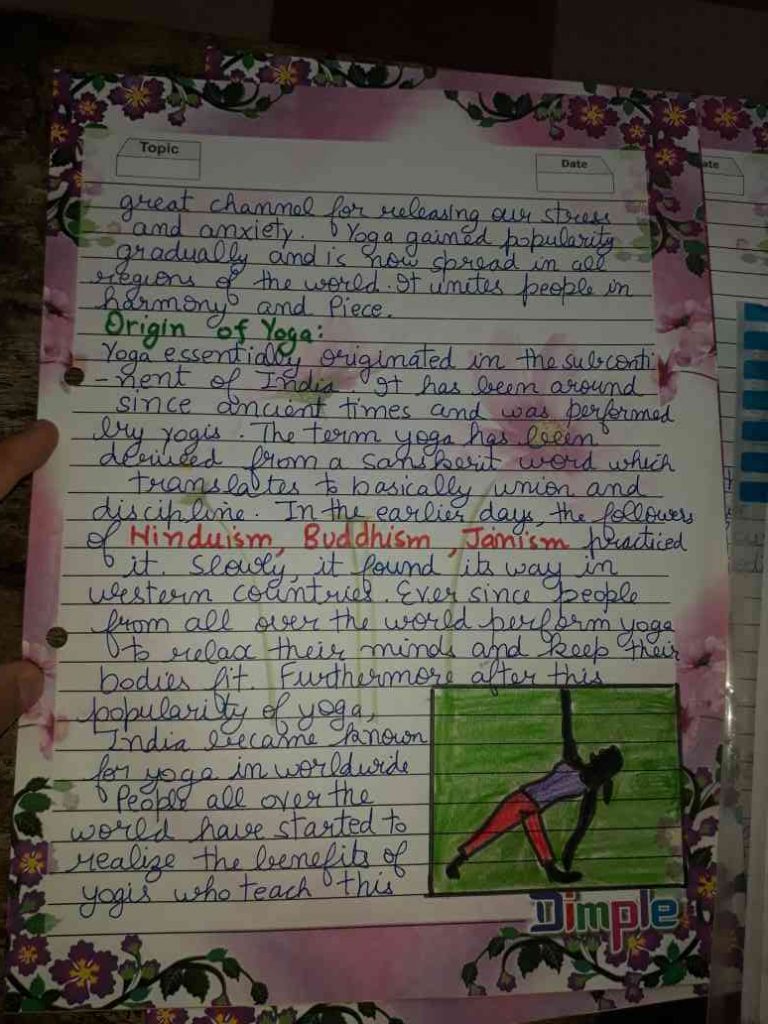 Topic
Date
ate
great channel for releasing our stress
and anxiety. Yoga gained popularity
gradually and is now spread in all
regions of the world. It unites people in
harmony and Piece.
Origin of Yoga:
Yoga essentially originated in the subconti
-nent of India. It has been around
since ancient times and was performed
by yogis. The term yoga has been
derived from a sanskerit word which
translates to basically union and
discipline. In the earlier days, the followers
of Hinduism, Buddhism, Jainism practiced
it. Slowly, it found its way in
western countries. Ever since people
from all over the world perform yoga
to relax their minds and keep their
bodies fit. Furthermore after this
popularity of yoga,
India became known
for yoga in worldwide
People all over the
world have started to
realize the benefits of
yogis who teach this
Dimple